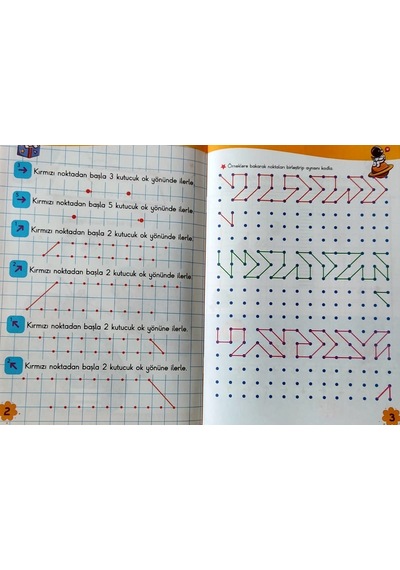 Kırmızı noktadan başla 3 kutucuk ok yönünde ilerle.
Kırmızı noktadan başla 5 kutucuk ok yönünde ilerle.
Kırmızı noktadan başla 2 kutucuk ok yönünde ilerle.
Kırmızı noktadan başla 2 kutucuk ok yönünde ilerle.
Kırmızı noktadan başla 2 kutucuk ok yönüne ilerle.
Kırmızı noktadan başla 2 kutucuk ok yönüne ilerle.
2
Örneklere bakarak noktaları birleştirip aynısını kodla.
3